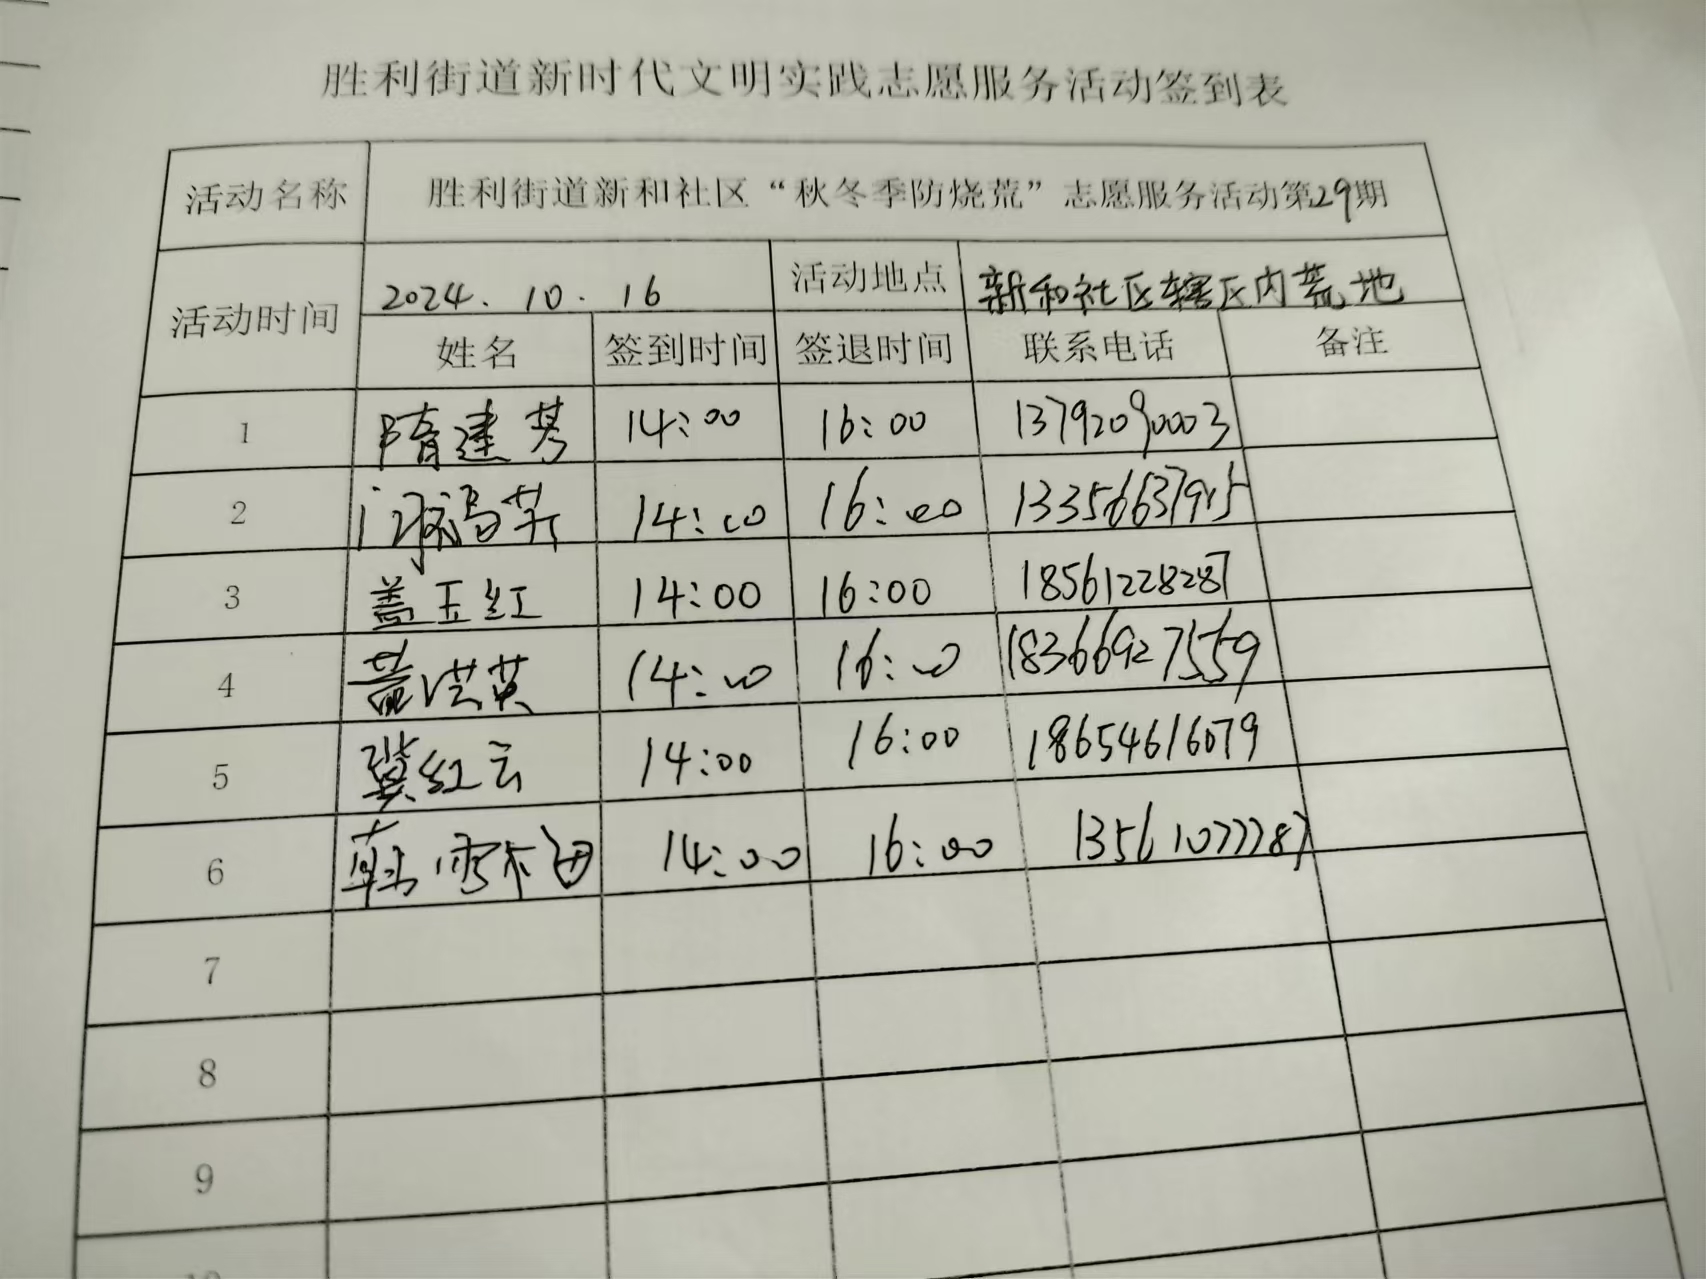 胜利街道新时代文明实践志愿服务活动签到表
活动名称 胜利街道新和社区“秋冬季防烧荒”志愿服务活动第29期
活动时间 2024.10.16 活动地点 新和社区辖区内荒地
姓名 签到时间 签退时间 联系电话 备注
1 隋建芳 14:00 16:00 13792090003
2 14:00 16:00 13356637915
3 盖玉红 14:00 16:00 18561228287
4 洪英 14:00 16:00 18366927559
5 冀红云 14:00 16:00 18654616079
6 韩雪 14:00 16:00 13561077787
7
8
9